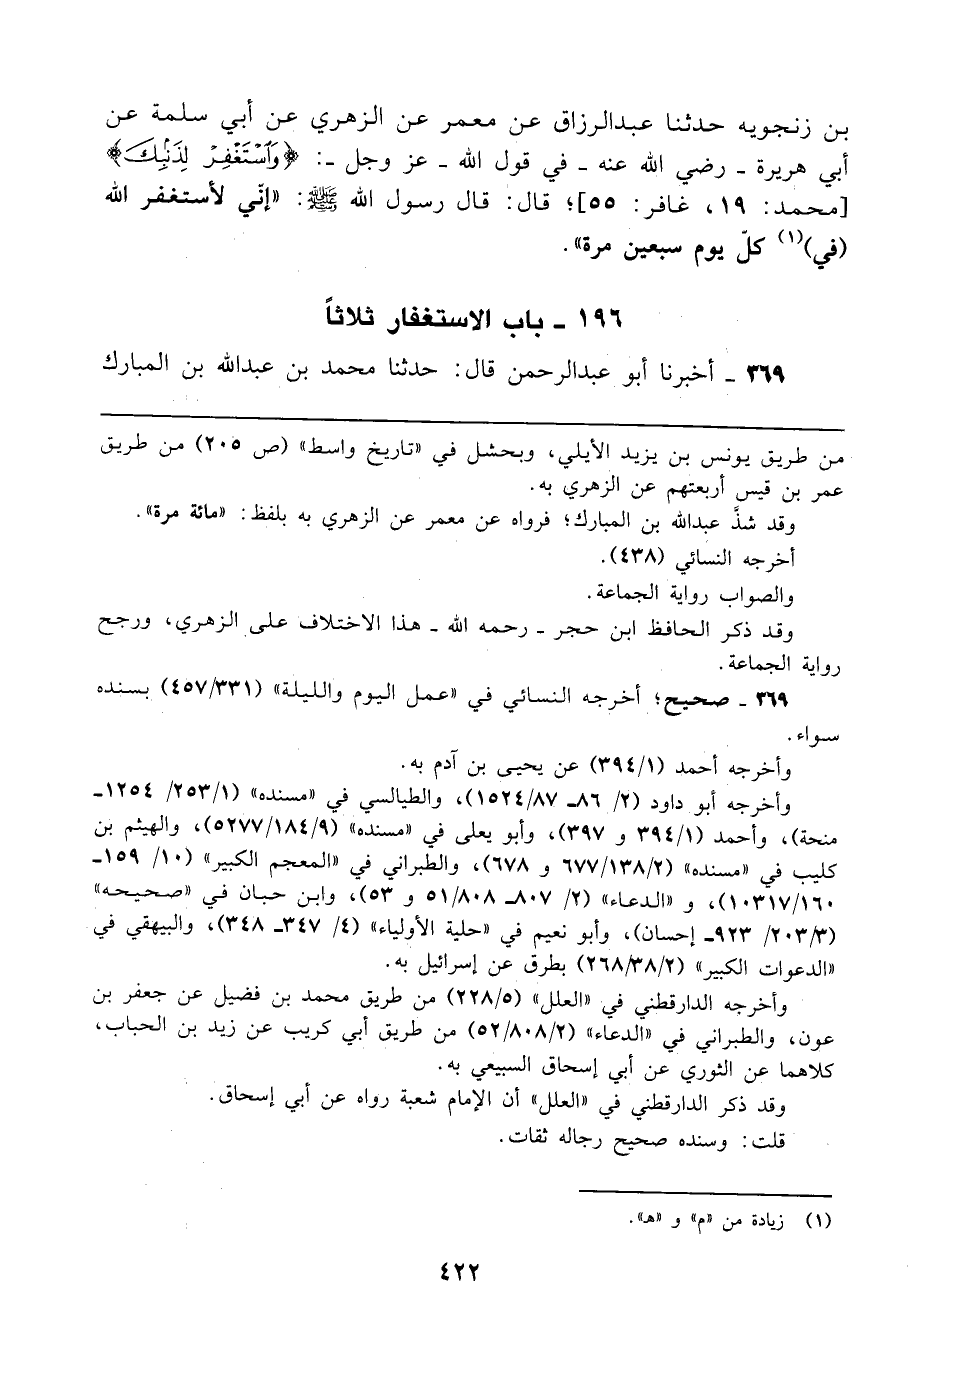 بن زنجويه حدثنا عبدالرزاق عن معمر عن الزهري عن أبي سلمة عن
أبي هريرة ـ رضي الله عنه ـ في قول الله ـ عز وجل ـ: ﴿وَٱسْتَغْفِرْ لِذَنۢبِكَ﴾
[محمد: ١٩، غافر: ٥٥]؛ قال: قال رسول الله ﷺ: «إنّي لأستغفر الله
(في)(١) كلّ يوم سبعين مرة».
١٩٦ ـ باب الاستغفار ثلاثاً
٣٦٩ ـ أخبرنا أبو عبدالرحمن قال: حدثنا محمد بن عبدالله بن المبارك
من طريق يونس بن يزيد الأيلي، وبحشل في «تاريخ واسط» (ص ٢٠٥) من طريق
عمر بن قيس أربعتهم عن الزهري به.
وقد شذَّ عبدالله بن المبارك؛ فرواه عن معمر عن الزهري به بلفظ: «مائة مرة».
أخرجه النسائي (٤٣٨).
والصواب رواية الجماعة.
وقد ذكر الحافظ ابن حجر ـ رحمه الله ـ هذا الاختلاف على الزهري، ورجح
رواية الجماعة.
٣٦٩ ـ صحيح؛ أخرجه النسائي في «عمل اليوم والليلة» (٤٥٧/٣٣١) بسنده
سواء.
وأخرجه أحمد (٣٩٤/١) عن يحيى بن آدم به.
وأخرجه أبو داود (٢/ ٨٦ـ ١٥٢٤/٨٧)، والطيالسي في «مسنده» (٢٥٣/١/ ١٢٥٤ـ
منحة)، وأحمد (٣٩٤/١ و ٣٩٧)، وأبو يعلى في «مسنده» (٥٢٧٧/١٨٤/٩)، والهيثم بن
كليب في «مسنده» (٦٧٧/١٣٨/٢ و ٦٧٨)، والطبراني في «المعجم الكبير» (١٠/ ١٥٩ـ
١٠٣١٧/١٦٠)، و «الدعاء» (٢/ ٨٠٧ـ ٥١/٨٠٨ و ٥٣)، وابن حبان في «صحيحه»
(٢٠٣/٣/ ٩٢٣ـ إحسان)، وأبو نعيم في «حلية الأولياء» (٤/ ٣٤٧ـ ٣٤٨)، والبيهقي في
«الدعوات الكبير» (٢٦٨/٣٨/٢) بطرق عن إسرائيل به.
وأخرجه الدارقطني في «العلل» (٢٢٨/٥) من طريق محمد بن فضيل عن جعفر بن
عون، والطبراني في «الدعاء» (٥٢/٨٠٨/٢) من طريق أبي كريب عن زيد بن الحباب،
كلاهما عن الثوري عن أبي إسحاق السبيعي به.
وقد ذكر الدارقطني في «العلل» أن الإمام شعبة رواه عن أبي إسحاق.
قلت: وسنده صحيح رجاله ثقات.
(١) زيادة من «م» و «هـ».
٤٢٢